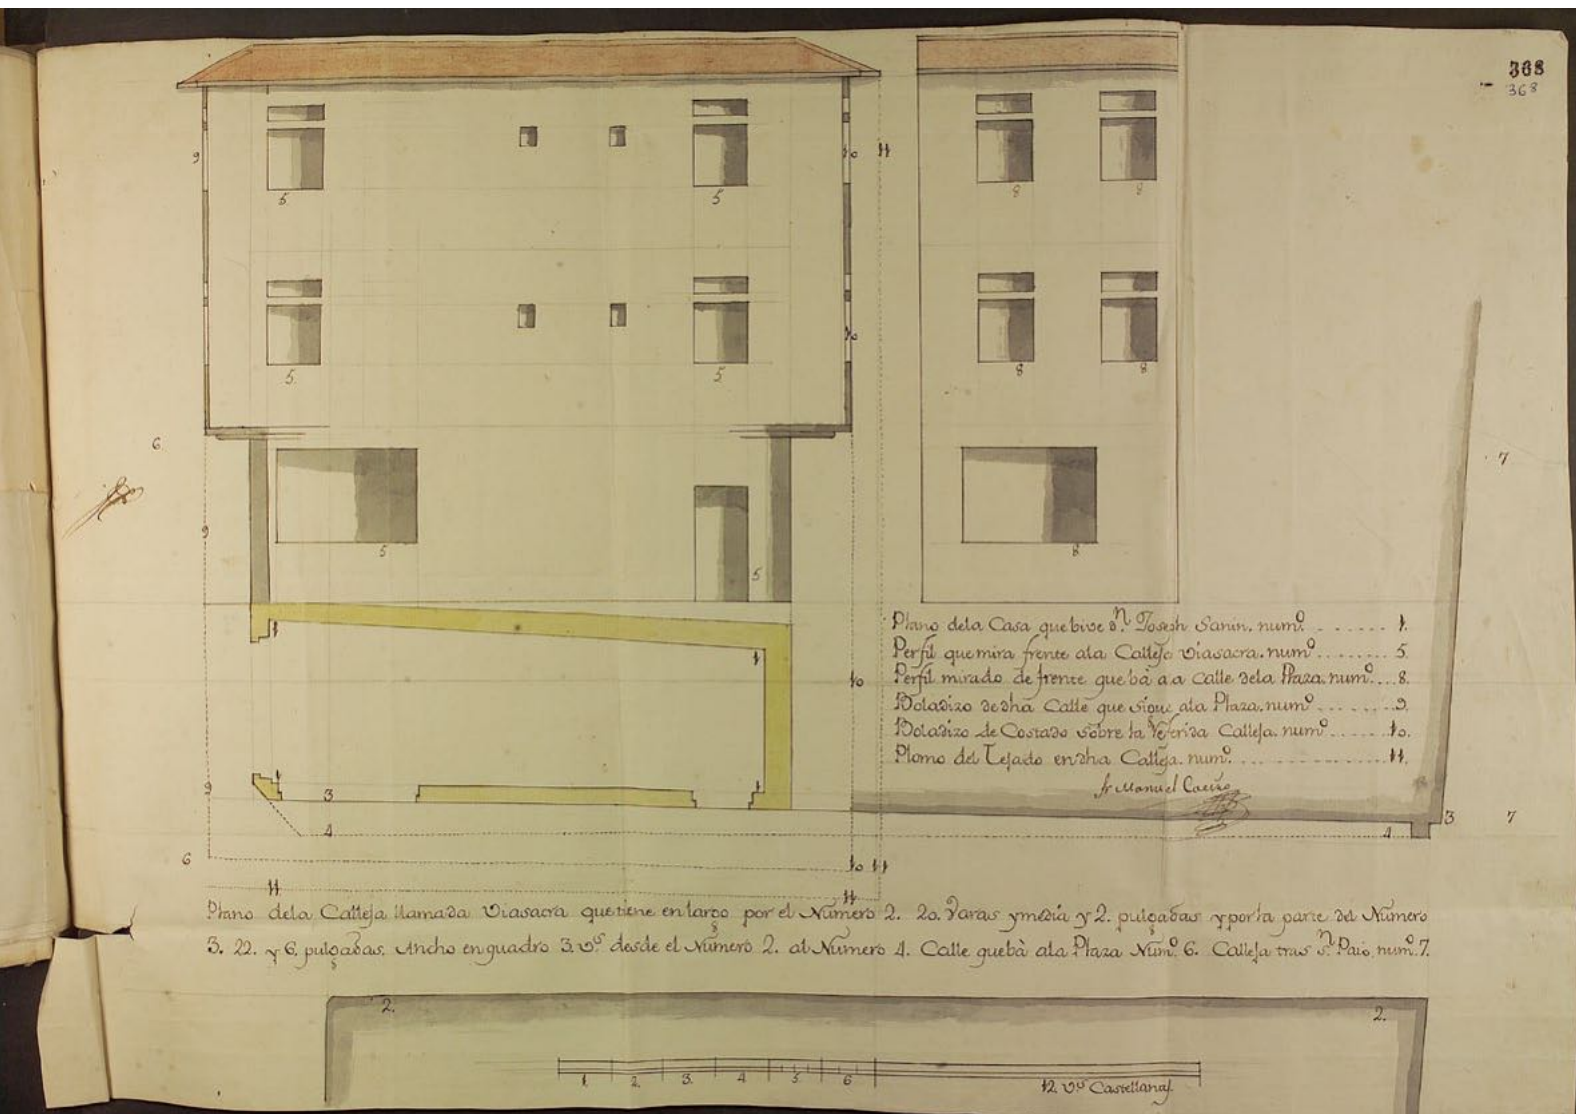 368
368
9
10
11
5
5
8
8
10
5
5
8
8
6
7
9
5
5
8
1
1
10
9
1
1
3
4
3
7
4
6
10
11
11
11
Plano dela Casa que bive dn. Joseph Sanin. numo. ....... 1.
Perfil que mira frente ala Calleja Viasacra. numo ....... 5.
Perfil mirado de frente que bà a a calle dela Plaza. numo. ... 8.
Boladizo de dha Calle que sigue ala Plaza. numo ....... 9.
Boladizo de Costado sobre la Referida Calleja. numo ....... 10.
Plomo del Tejado en dha Calleja. numo. ....... 11.
fr Manuel
Plano dela Calleja llamada Viasacra que tiene en largo por el Numero 2. 20. Varas y media y 2. pulgadas y por la parte del Numero
3. 22. y 6. pulgadas. Ancho en guadro 3. vs. desde el Numero 2. al Numero 4. Calle que bà ala Plaza Numo. 6. Calleja tras Sn. Paio, numo. 7.
2.
2.
1. 2. 3. 4 5 6 12. vs Castellanas.